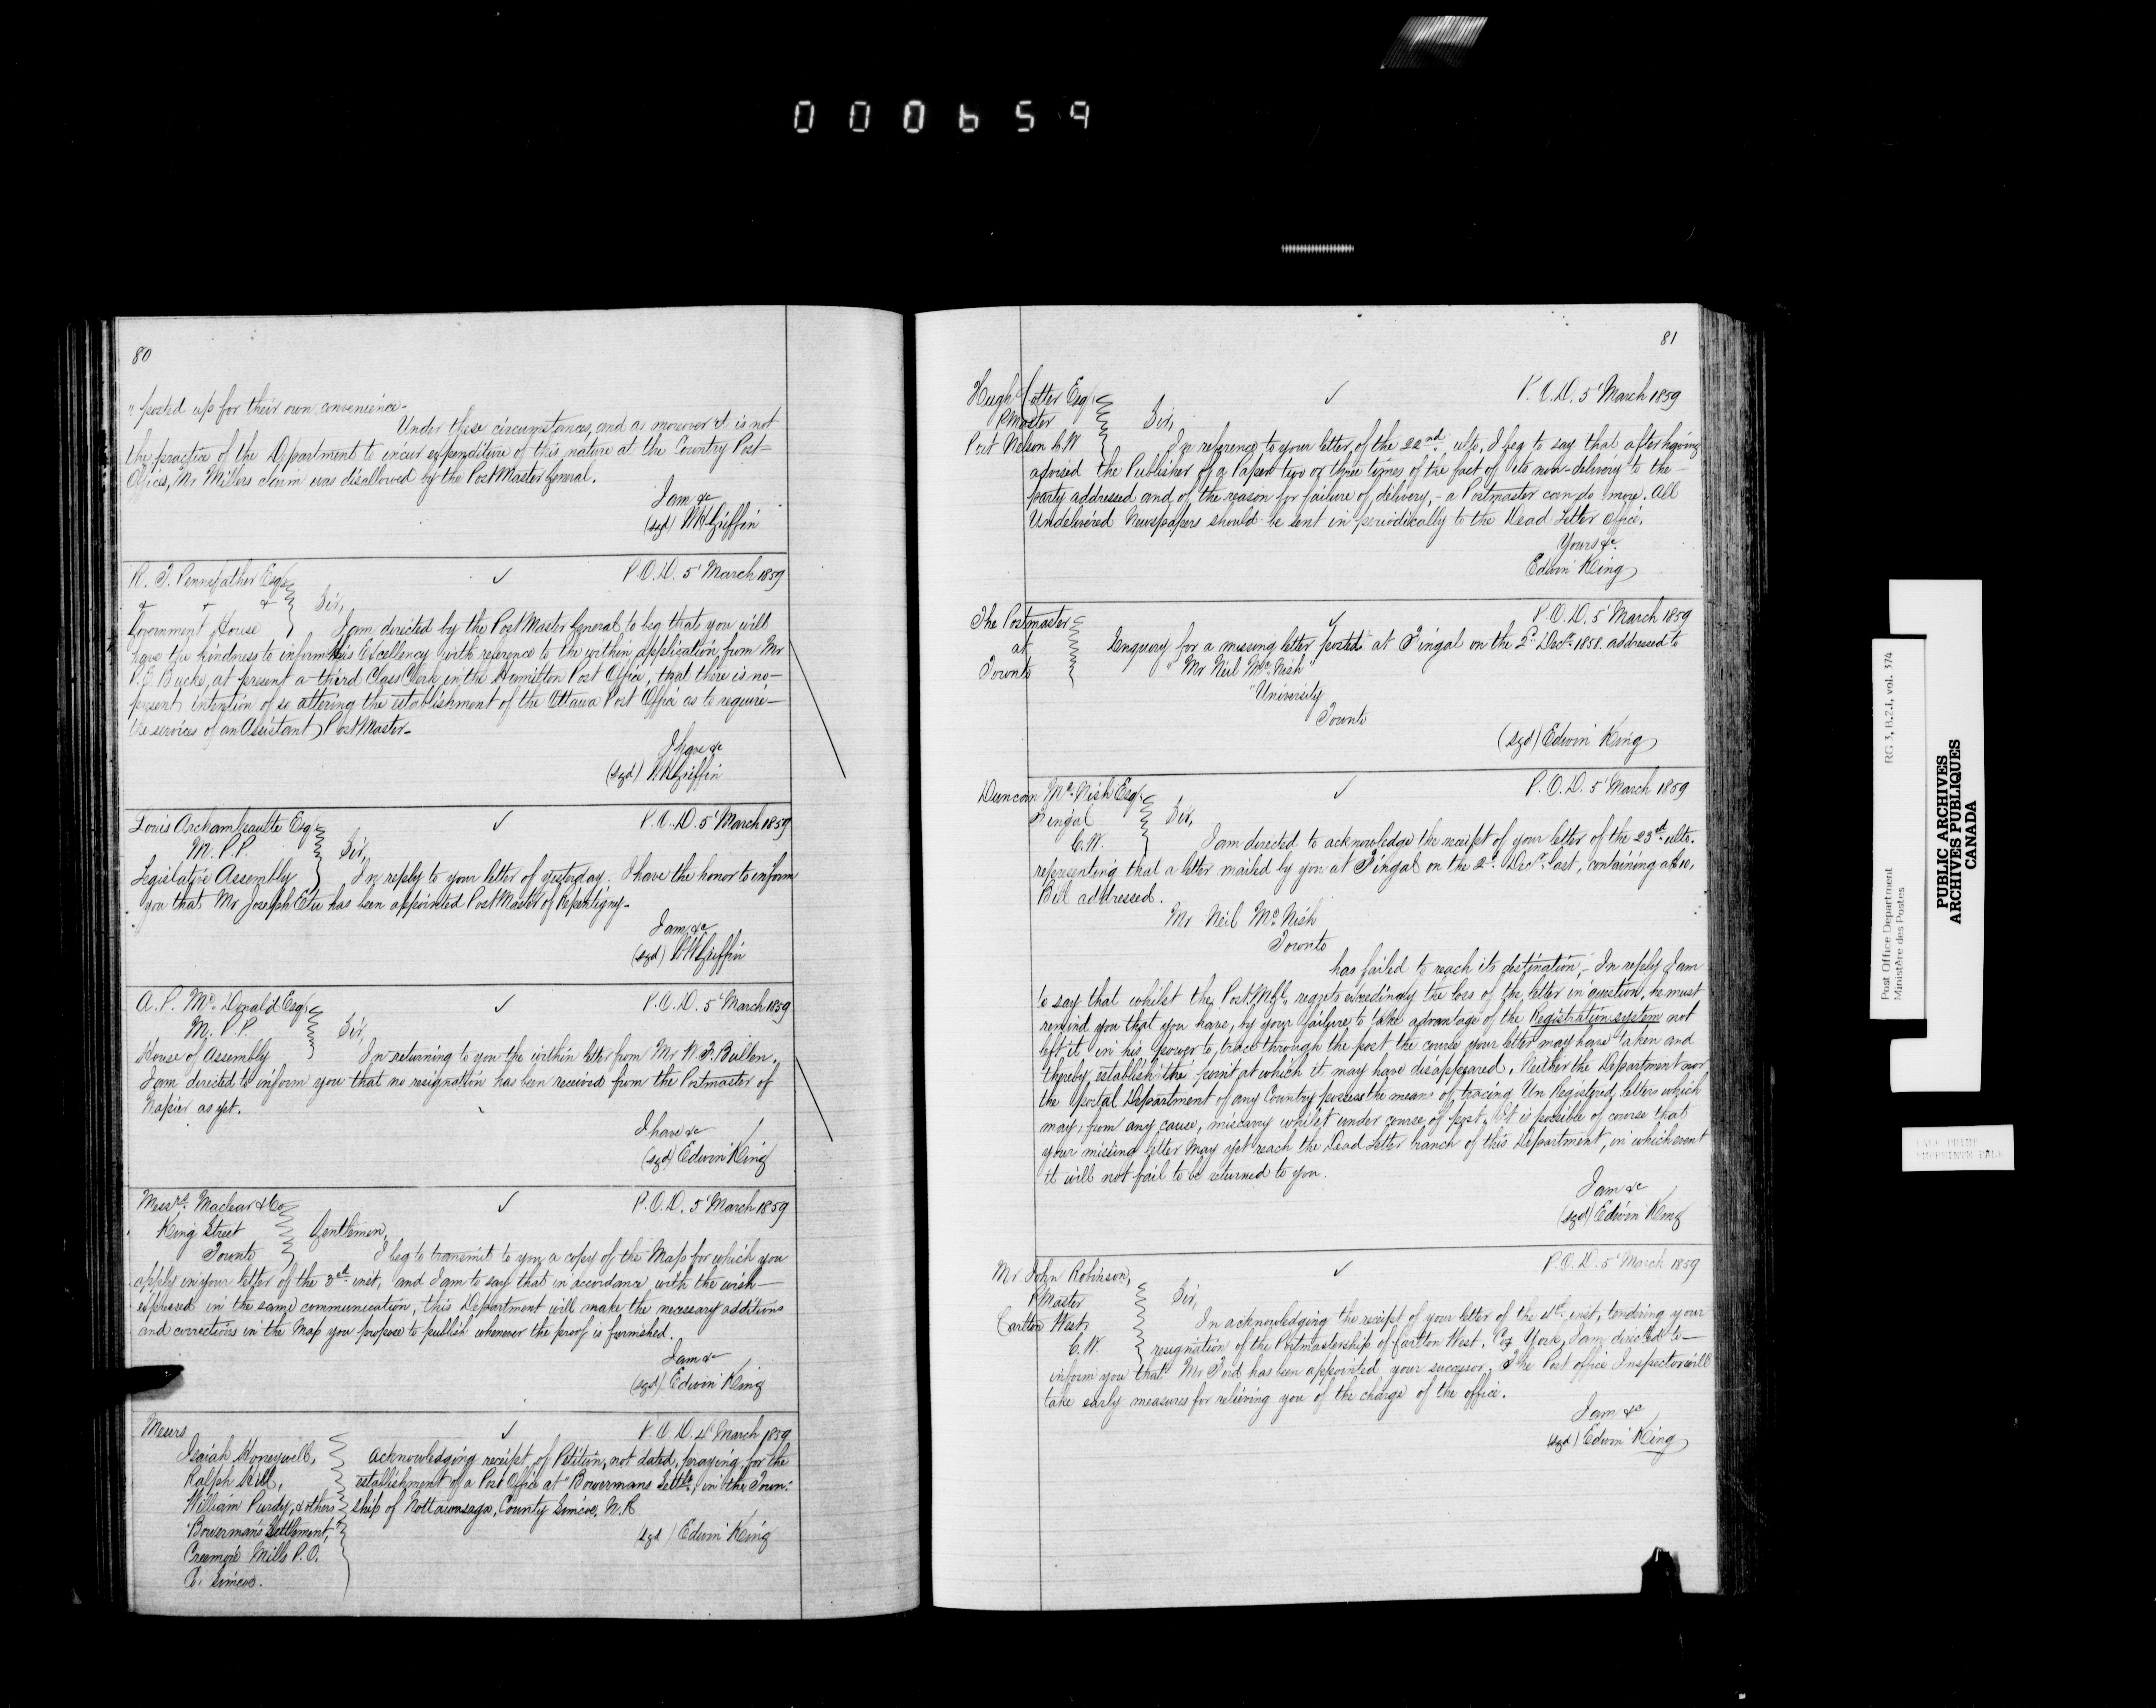 000659
80
" posted up for their own convenience-
Under these circumstances, and as moreover it is not
the practice of the Department to incur expenditure of this nature at the Country Post=
Offices, Mr Millers claim was disallowed by the PostMaster General.
I am &c
(sgd) W H Griffin
R. T. Pennefather Esqr
P.O.D. 5' March 1859
& & &
Sir,
Government House
I am directed by the PostMaster General to beg that you will
have the kindness to inform His Excellency with reference to the within application from Mr
P. E Bucke, at present a third Class Clerk in the Hamilton Post Office, that there is no-
present intention of so altering the establishment of the Ottawa Post Office as to require-
the services of an Assistant PostMaster-
I have &c
(sgd) W H Griffin
Louis Archambeaulte Esqr
P.O.D. 5' March 1859
M. P. P.
Sir,
Legislative Assembly
In reply to your letter of yesterday. I have the honor to inform
you that Mr Joseph Etu has been appointed PostMaster of Repentigny-
I am &c
(sgd) W H Griffin
A. P. Mc Donald Esqr
P.O.D. 5' March 1859
M. P. P.
Sir,
House of Assembly
In returning to you the within letter from Mr W. F. Bullen,
I am directed to inform you that no resignation has been received from the Postmaster of
Napier as yet.
I have &c
(sgd) Edwin King
Messrs. Maclear & Co
P.O.D. 5' March 1859
King Street
Gentlemen,
Toronto
I beg to transmit to you a copy of the Map for which you
apply in your letter of the 3rd inst, and I am to say that in accordance with the wish-
expressed in the same communication, this Department will make the necessary additions
and corrections in the Map you propose to publish whenever the proof is furnished.
I am &c
(sgd) Edwin King
Messrs
P.O.D. 4' March 1859
Isaiah Honeywell,
Acknowledging receipt of Petition, not dated, praying for the
Ralph Hill,
establishment of a Post Office at "Bowermans Settlt, in the Town=
William Purdy, & others
ship of Nottawasaga, County Simcoe, N.R
"Bowerman's Settlement,"
(sgd) Edwin King
Creemore Mills P.O.
Co. Simcoe.
81
Hugh Cotter Esqr
P.O.D. 5' March 1859
PMaster
Sir,
Port Nelson C.W
In reference to your letter of the 22nd, ulto, I beg to say that after having
advised the Publisher of a Paper two or three times of the fact of its non-delivery to the-
party addressed and of the reason for failure of delivery,- a Postmaster can do more. All
Undelivered Newspapers should be sent in periodically to the Dead Letter Office.
Yours &c.
Edwin King
The Postmaster
P.O.D. 5' March 1859
at
Toronto
Enquiry for a missing letter posted at Fingal on the 2d Decr 1858. addressed to
" Mr Neil Mc Nish"
"University
Toronto
(sgd) Edwin King
Duncan Mc Nish Esqr
P.O.D. 5' March 1859
Fingal
Sir,
C.W.
I am directed to acknowledge the receipt of your letter of the 23rd ulto.
representing that a letter mailed by you at Fingal on the 2d Decr last, containing a $10,
Bill addressed.
Mr Neil Mc Nish
Toronto
has failed to reach its destination,- In reply I am
to say that whilst the Post. M. Gl, regrets exceedingly the loss of the letter in question, he must
remind you that you have, by your failure to take advantage of the Registration system not
left it in his power to trace through the post the course your letter may have taken and
thereby establish the point at which it may have disappeared. Neither the Department nor
the postal Department of any Country possess the means of tracing Un Registered letters which
may, from any cause, miscarry whilst under course of post. It is possible of course that
your missing letter may yet reach the Dead Letter branch of this Department, in which event
it will not fail to be returned to you.
I am &c
(sgd) Edwin King
Mr. John Robinson,
P.O.D. 5' March 1859
PMaster
Sir,
Carlton West,
C.W.
In acknowledging the receipt of your letter of the 4th inst, tendering your
resignation of the Postmastership of Carlton West, Co. York, I am directed to-
inform you that Mr Ford has been appointed your successor. The Post office Inspector will
take early measures for relieving you of the charge of the office.
I am &c
(sgd) Edwin King
Post Office Department RG 3, B.2.1, vol. 374
Ministère des Postes
PUBLIC ARCHIVES
ARCHIVES PUBLIQUES
CANADA